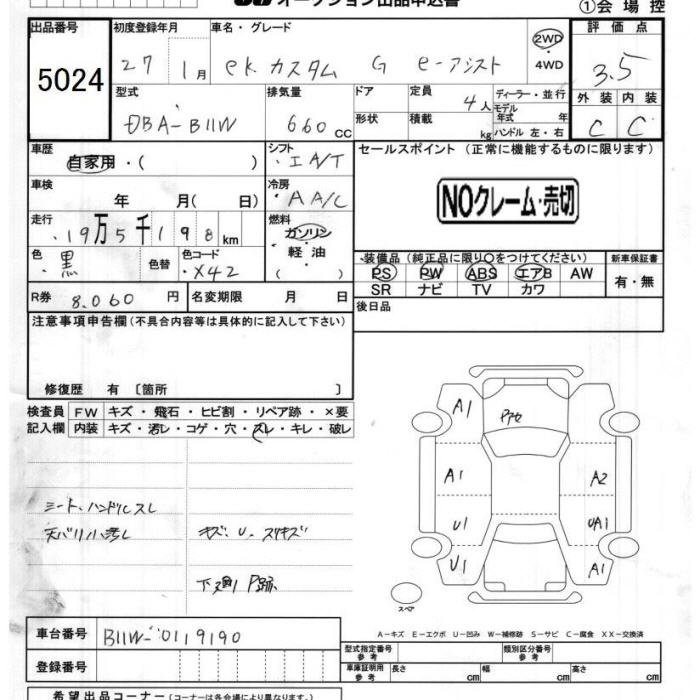 オークション出品申込書
①会場控
出品番号 初度登録年月 車名・グレード 評価点
5024 27 1月 ek カスタム G e-アシスト 2WD ・4WD 3.5
型式 排気量 ドア 定員 ディーラー・並行 外装 内装
DBA-B11W 660 CC 4人 モデル年式 年 C C
形状 積載 kg ハンドル 左・右
車歴 シフト セールスポイント (正常に機能するものに限ります)
自家用・( ) IA/T
車検 冷房
年 月( 日) AA/C NOクレーム・売切
走行 燃料
19万5千198km ガソリン・軽油
色 色替 色コード 装備品(純正品に限り○をつけてください) 新車保証書
黒 X42 PS PW ABS エアB AW 有・無
SR ナビ TV カワ
R券 8.060円 名変期限 月 日 後日品
注意事項申告欄(不具合内容等は具体的に記入して下さい)
修復歴 有 〔箇所 〕
検査員 FW キズ・飛石・ヒビ割・リペア跡・×要
記入欄 内装 キズ・汚レ・コゲ・穴・スレ・キレ・破レ
A1
A1 A2
シート、ハンドルスレ
天バリ小汚し キズ、U、スリキズ
U1 UA1
U1 A1
下廻りP跡
スペア
A-キズ E-エクボ U-凹み W-補修跡 S-サビ C-腐食 XX-交換済
車台番号 B11W-0119190
型式指定番号 参考 類別区分番号 参考
登録番号
車庫証明用 参考 長さ cm 幅 cm 高さ cm
希望出品コーナー(コーナーは各会場により異なります)